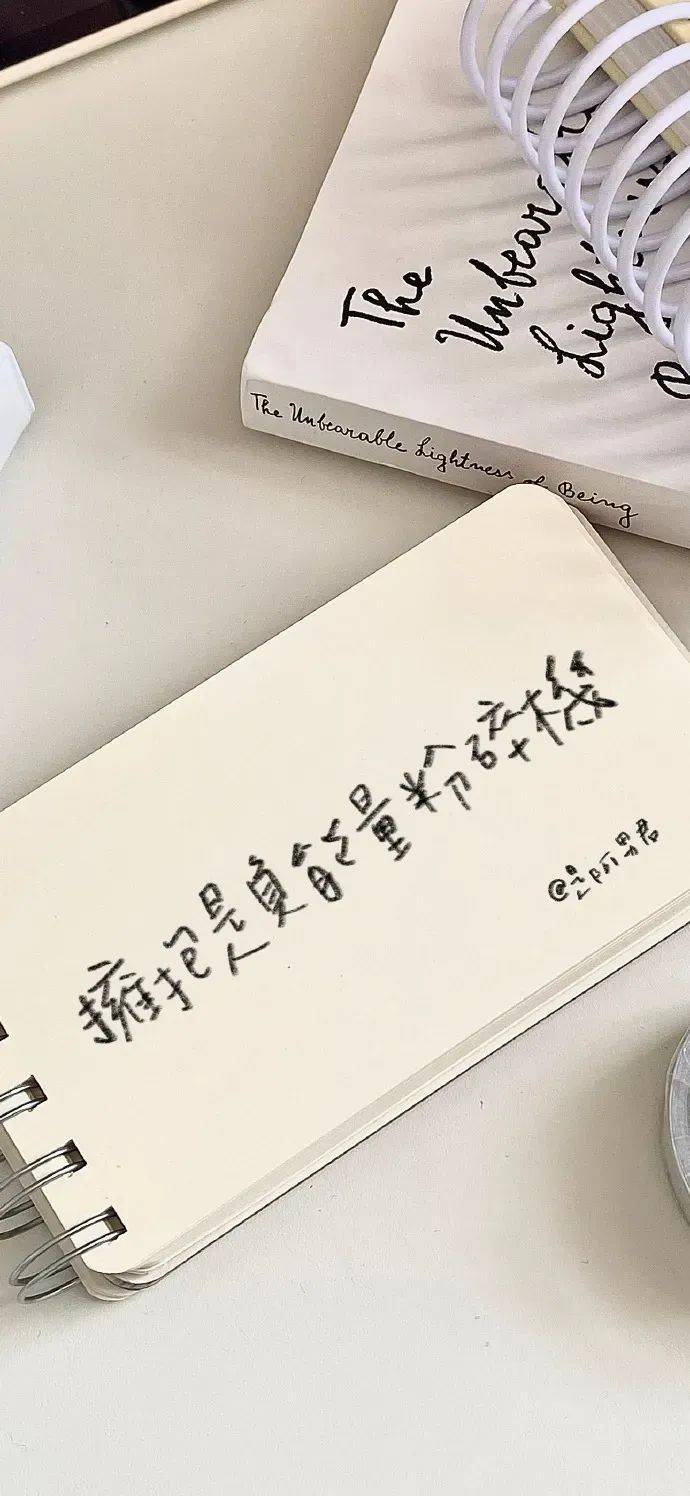 The
Unbear
Light
The Unbearable Lightness of Being
擁抱是負能量粉碎機